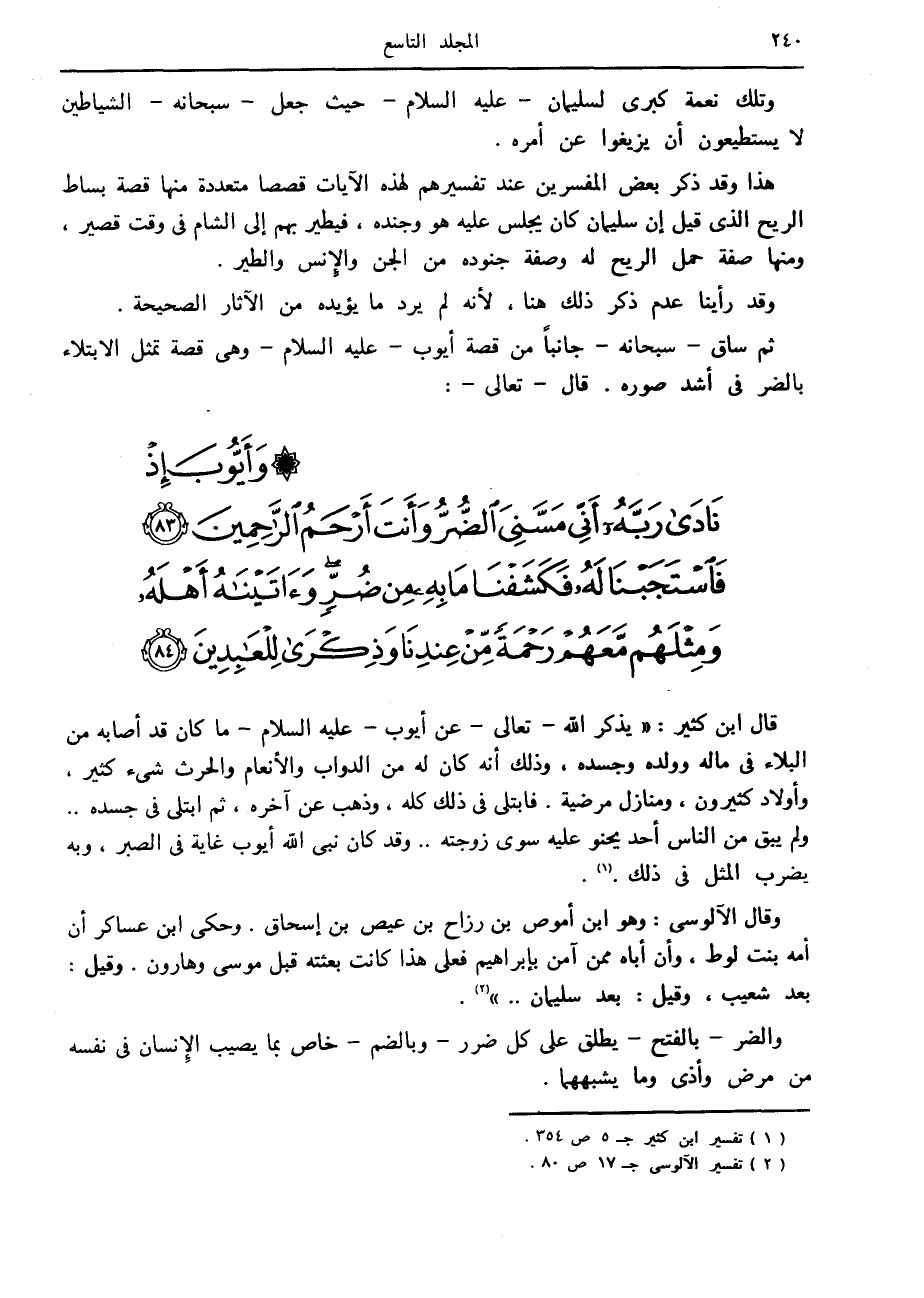 ٢٤٠ المجلد التاسع
وتلك نعمة كبرى لسليمان - عليه السلام - حيث جعل - سبحانه - الشياطين
لا يستطيعون أن يزيغوا عن أمره .
هذا وقد ذكر بعض المفسرين عند تفسيرهم لهذه الآيات قصصا متعددة منها قصة بساط
الريح الذى قيل إن سليمان كان يجلس عليه هو وجنده ، فيطير بهم إلى الشام فى وقت قصير ،
ومنها صفة حمل الريح له وصفة جنوده من الجن والإنس والطير .
وقد رأينا عدم ذكر ذلك هنا ، لأنه لم يرد ما يؤيده من الآثار الصحيحة .
ثم ساق - سبحانه - جانباً من قصة أيوب - عليه السلام - وهى قصة تمثل الابتلاء
بالضر فى أشد صوره . قال - تعالى - :
۞ وَأَيُّوبَ إِذۡ
نَادَىٰ رَبَّهُۥٓ أَنِّي مَسَّنِيَ ٱلضُّرُّ وَأَنتَ أَرۡحَمُ ٱلرَّٰحِمِينَ ﴿٨٣﴾
فَٱسۡتَجَبۡنَا لَهُۥ فَكَشَفۡنَا مَا بِهِۦ مِن ضُرّٖۖ وَءَاتَيۡنَٰهُ أَهۡلَهُۥ
وَمِثۡلَهُم مَّعَهُمۡ رَحۡمَةٗ مِّنۡ عِندِنَا وَذِكۡرَىٰ لِلۡعَٰبِدِينَ ﴿٨٤﴾
قال ابن كثير : « يذكر الله - تعالى - عن أيوب - عليه السلام - ما كان قد أصابه من
البلاء فى ماله وولده وجسده ، وذلك أنه كان له من الدواب والأنعام والحرث شىء كثير ،
وأولاد كثيرون ، ومنازل مرضية . فابتلى فى ذلك كله ، وذهب عن آخره ، ثم ابتلى فى جسده ..
ولم يبق من الناس أحد يحنو عليه سوى زوجته .. وقد كان نبى الله أيوب غاية فى الصبر ، وبه
يضرب المثل فى ذلك .(١) .
وقال الآلوسى : وهو ابن أموص بن رزاح بن عيص بن إسحاق . وحكى ابن عساكر أن
أمه بنت لوط ، وأن أباه ممن آمن بإبراهيم فعلى هذا كانت بعثته قبل موسى وهارون . وقيل :
بعد شعيب ، وقيل : بعد سليمان .. »(٢) .
والضر - بالفتح - يطلق على كل ضرر - وبالضم - خاص بما يصيب الإنسان فى نفسه
من مرض وأذى وما يشبههما .
( ١ ) تفسير ابن كثير جـ ٥ ص ٣٥٤ .
( ٢ ) تفسير الآلوسى جـ ١٧ ص ٨٠ .